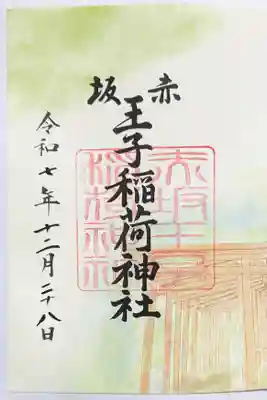 赤坂
王子稲荷神社
令和七年十二月二十八日